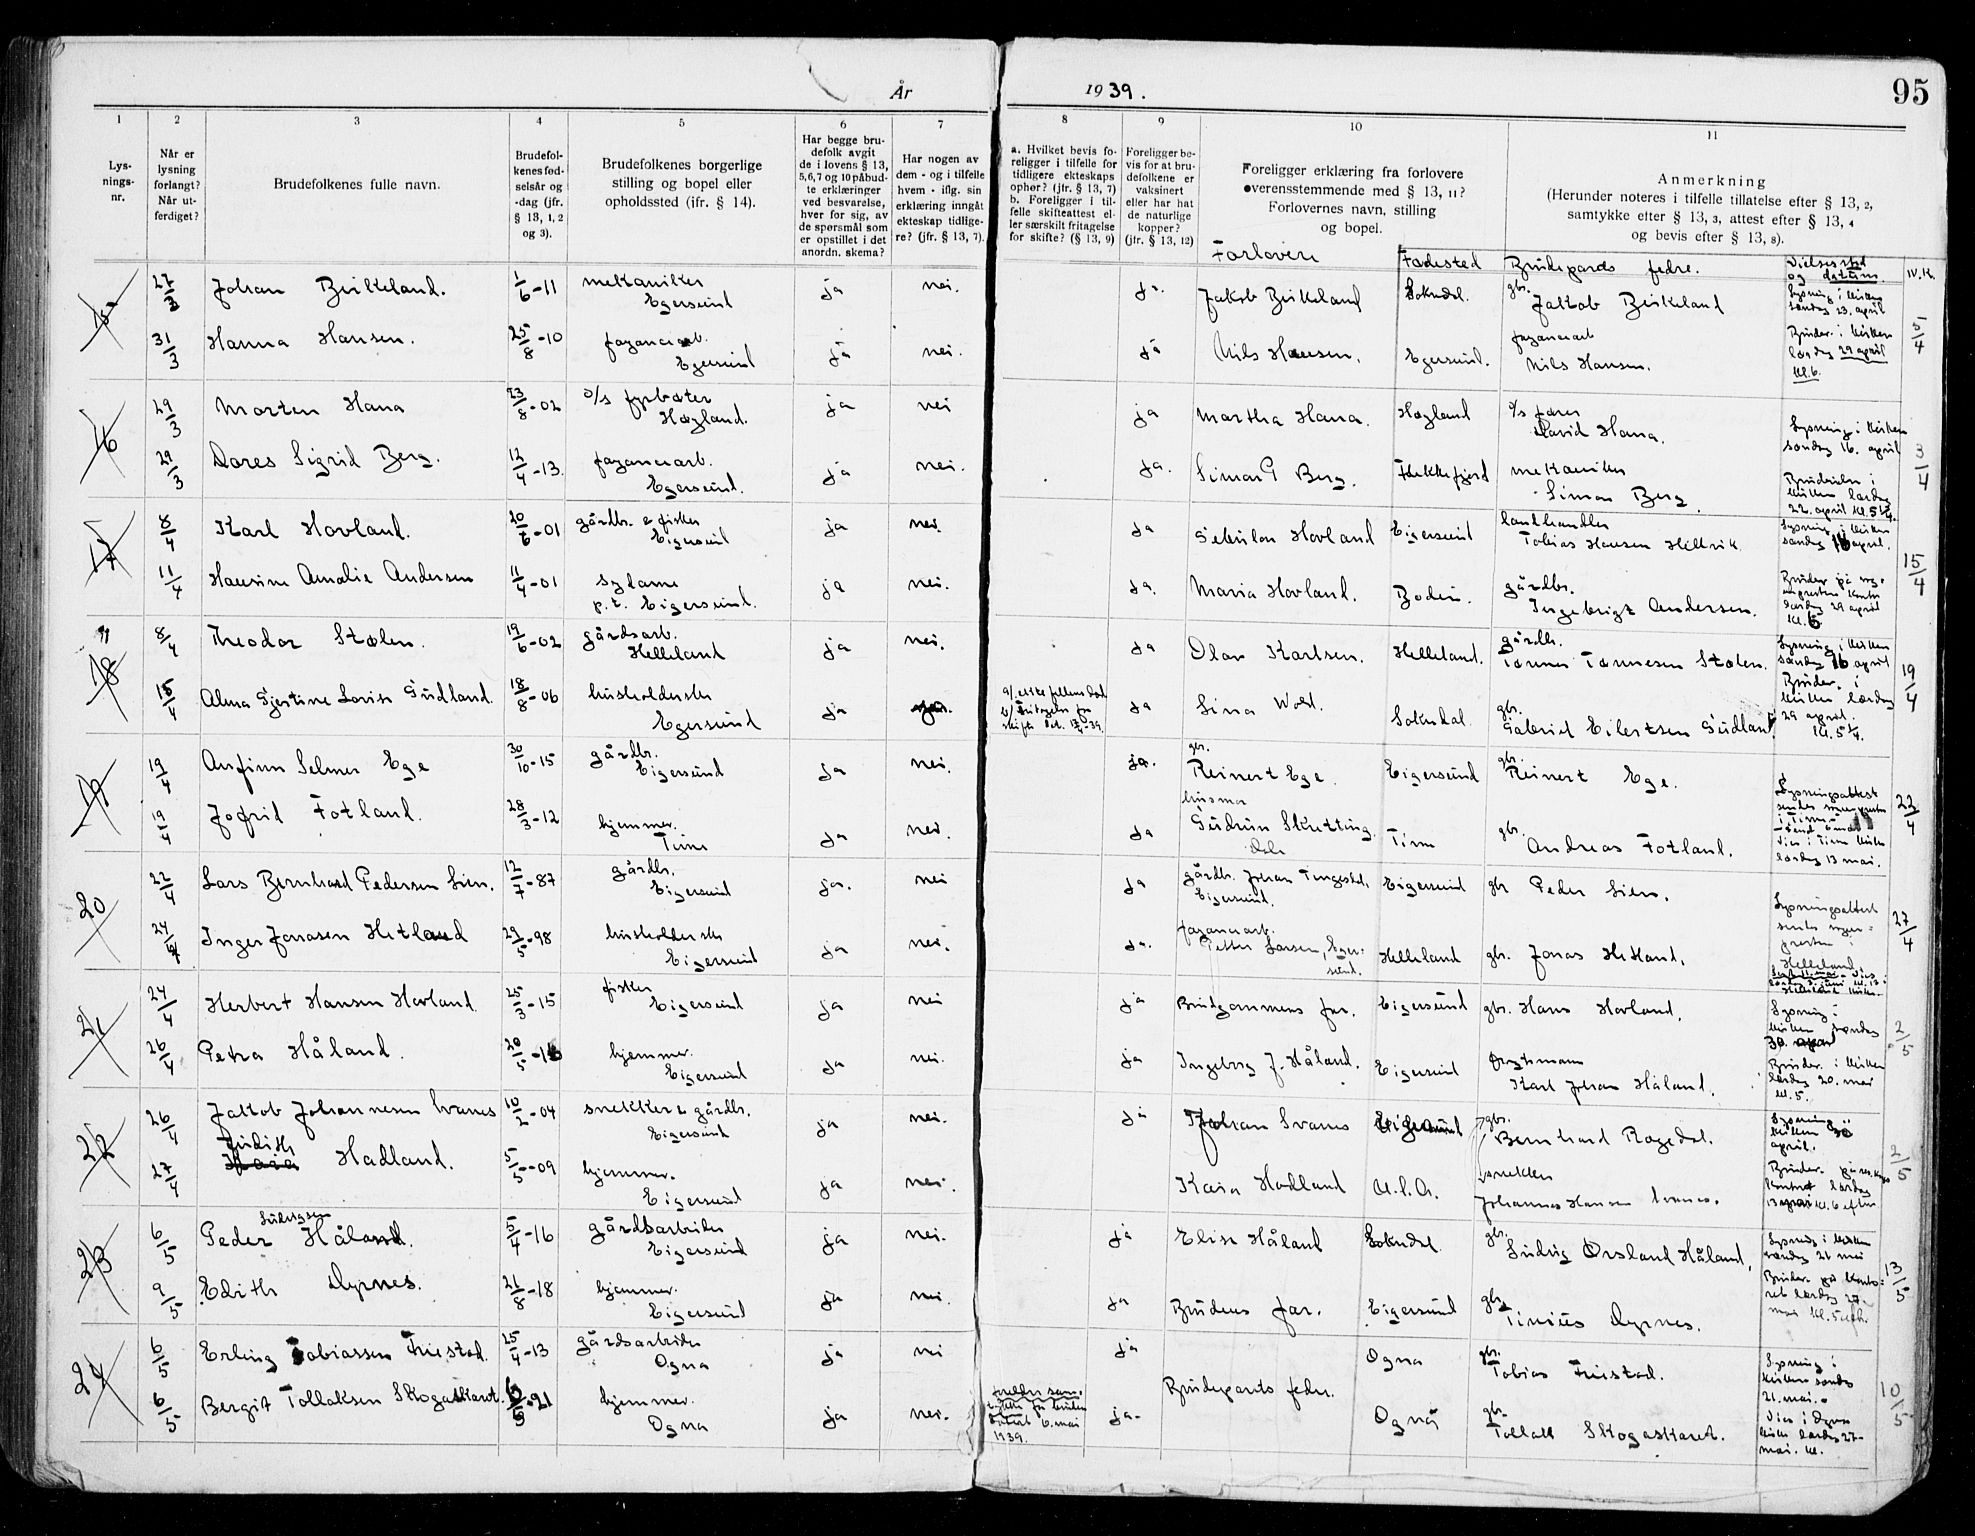 År 1939.
95
1
2
3
4
5
6
7
8
9
10
11
Lys-
nings-
nr.
Når er
lysning
forlangt?
Når ut-
ferdiget?
Brudefolkenes fulle navn.
Brudefol-
kenes fød-
selsår og
-dag (jfr.
§ 13, 1, 2
og 3).
Brudefolkenes borgerlige
stilling og bopel eller
opholdssted (ifr. § 14).
Har begge bru-
defolk avgit
de i lovens § 13,
5, 6, 7 og 10 påbud-
te erklæringer
ved besvarelse,
hver for sig, av
de spørsmål som
er opstillet i det
anordn. skema?
Har nogen av
dem - og i tilfelle
hvem - iflg. sin
erklæring inngåt
ekteskap tidlige-
re? (jfr. § 13, 7).
a. Hvilket bevis fo-
religger i tilfelle for
tidligere ekteskaps
ophør? (jfr. § 13, 7)
b. Foreligger i til-
felle skifteattest el-
ler særskilt fritagelse
for skifte? (§ 13, 9)
Foreligger be-
vis for at bru-
defolkene er
vaksinert
eller har hat
de naturlige
kopper?
(jfr. § 13, 12)
Foreligger erklæring fra forlovere
overensstemmende med § 13, 11?
Forlovernes navn, stilling
og bopel.
Anmerkning
(Herunder noteres i tilfelle tillatelse efter § 13, 2,
samtykke efter § 13, 3, attest efter § 13, 4
og bevis efter § 13, 8).
Forlovere
Fødested
Brudeparets fedre.
Vielsessted
og datum.
15
27/3
Johan Birkeland.
1/6-11
mekaniker
Egersund
ja
nei.
ja.
Jakob Birkeland
Sokndal.
gbr.
Jakob Birkeland
Lysning i kirken
søndag 23. april
5/4
31/3
Hanna Hansen.
25/8-10
fayancearb.
Egersund
ja
nei.
ja
Nils Hansen.
Egersund.
fayancearb
Nils Hansen.
Brudev. i kirken
lørdag 29 april
kl. 6.
16
29/3
Morten Hana
23/8-02
o/s fyrbøter
Høyland.
ja
nei
ja
Martha Hana.
Høyland
o/s fører
David Hana.
Lysning i kirken
søndag 16. april
3/4
29/3
Dores Sigrid Berg.
12/4-13.
fayancearb.
Egersund.
ja
nei.
ja.
Simon G Berg.
Flekkefjord
mekaniker
Simon Berg
kirken lørdag
22. april kl. 5½.
17
8/4
Karl Hovland.
20/6-01
gårdbr. & fisker
Eigersund
ja
nei.
ja
Sebulon Hovland
Eigersund
landhandler
Tobias Hansen Hellvik
Lysning i kirken
søndag 16 april.
15/4
11/4
Hansine Amalie Andersen
11/4-01
sydame
p.t. Eigersund.
ja
nei.
ja.
Maria Hovland.
Bodin.
gårdbr.
Ingebrigt Andersen.
lørdag 29 april
18
8/4
Theodor Stølen.
19/6-02
gårdsarb.
Helleland
ja
nei.
ja
Olav Karlsen.
Helleland.
gårdbr.
Tønnes Tønnesen Stølen.
Lysning i kirken
søndag 16 april
19/4
15/4
Alma Gjertine Lovise Gudland.
18/8-06
husholderske
Egersund
ja
ja
Sina Wold.
Sokndal.
gbr.
Gabriel Eilertsen Gudland.
Brudev. i
kirken lørdag
29 april.
19
19/4
Anfinn Selmer Ege
30/10-15
gårdbr.
Eigersund
ja
nei.
ja.
gbr.
Reinert Ege.
Eigersund
gbr.
Reinert Ege.
Lysningsattest
22/4
19/4
Jofrid Fotland.
28/3-12
hjemmev.
Time
ja
nei.
ja
husmor
Gudrun Skretting.
Time
gbr.
Andreas Fotland.
lørdag 13 mai.
20
22/4
Lars Bernhard Pedersen Lien.
12/7-87
gårdbr.
Eigersund
ja.
nei
ja
gårdbr. Johan Tengesdal,
Eigersund.
Eigersund
gbr Peder Lien.
Lysningsattest
27/4
24/4
Inger Jonasen Hetland
29/5-98
husholderske
Eigersund
ja
nei.
ja.
fayancearb.
Petter Larsen, Eger-
sund.
Helleland
gbr. Jonas Hetland.
Helleland
21
24/4
Herbert Hansen Hovland
25/3-15
fisker
Eigersund
ja
nei
ja
Brudgommens far.
Eigersund
gbr. Hans Hovland.
Lysning i
kirken søndag
2/5
26/4
Petra Håland.
20/5-16
hjemmev.
Eigersund
ja
nei.
ja
Ingeborg J. Håland.
Eigersund
Karl Johan Håland.
Brudev. i kirken
lørdag 20. mai
kl. 5.
22
26/4
Jakob Johannesen Svanes
10/2-04
snekker & gårdbr.
Eigersund
ja
nei.
ja
Johan Svanes
Eigersund
gbr.
Bernhard Rogedal.
Lysning i
kirken 30
april.
2/5
27/4
Judith
Hadland.
5/5-09
hjemmev.
Eigersund
ja
nei.
Kaia Hadland
U.S.A.
snekker
Johannes Hansen Svanes.
23
6/5
Ludvigsen
Peder Håland.
5/4-16
gårdsarbeider
Eigersund
ja
nei.
ja
Elise Håland
Sokndal
gbr.
Ludvig Orsland Håland,
Lysning i kirken
søndag 21 mai
13/5
9/5
Edith Dyrnes.
21/8-18
hjemmev.
Eigersund
ja
nei.
ja
Brudens far.
Eigersund
gbr
Tinius Dyrnes.
Brudev. på konto-
ret lørdag 27.
mai kl. 5 eft.
24
6/5
Erling Tobiassen Fuestad.
25/4-13
gårdsarbeider
Ogna
ja
nei
ja
Brudeparets fedre.
Ogna
gbr.
Tobias Fuestad.
Lysning i
kirken søndag
21. mai.
10/5
6/5
Bergit Tollaksen Skogaskaret.
hjemmev.
Ogna
ja
nei.
datert 6. mai
1939.
ja.
Ogna
gbr.
Tollak Skogaskaret.
Vies i Ogna
kirke lørdag 27-
mai. kl.